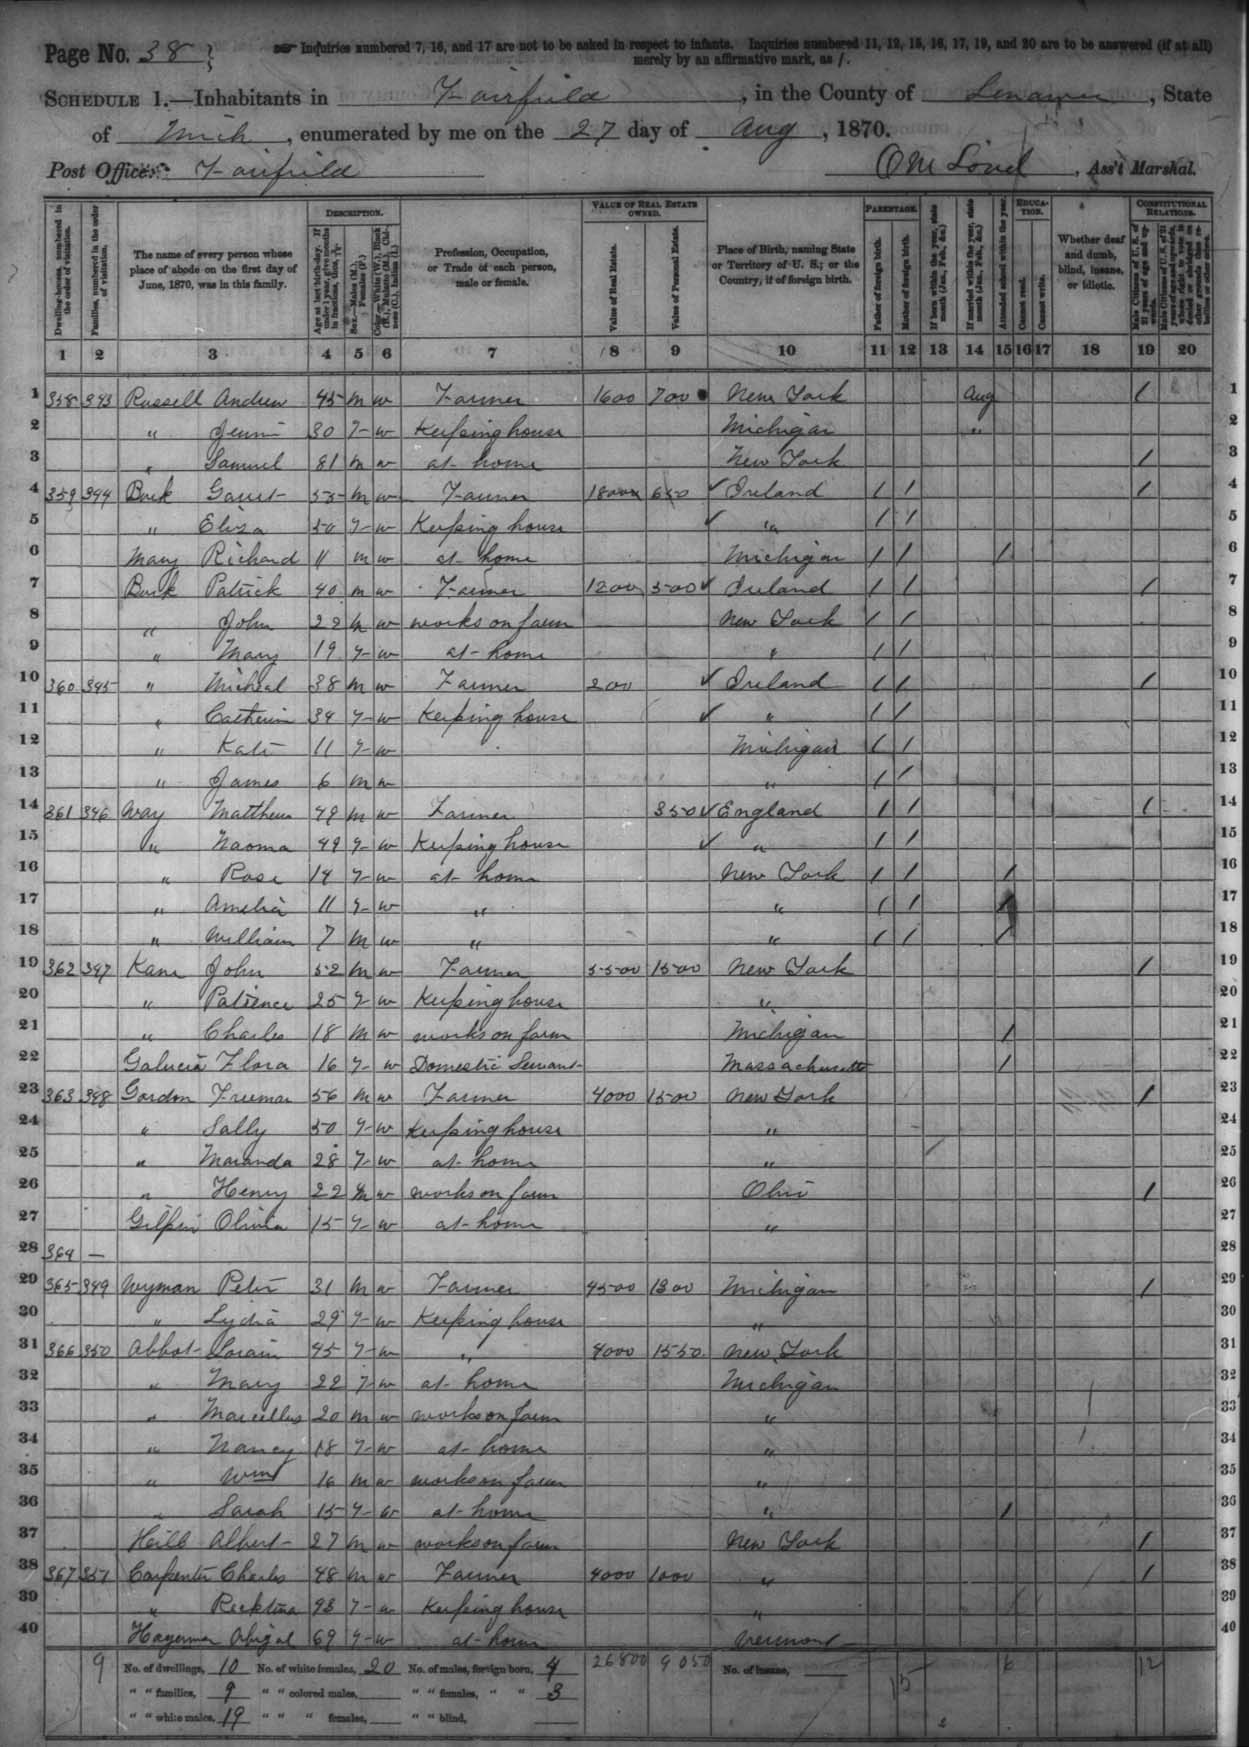 Page No. 38 Inquiries numbered 7, 16, and 17 are not to be asked in respect to infants. Inquiries numbered 11, 12, 15, 16, 17, 19, and 20 are to be answered (if at all)
merely by an affirmative mark, as /.
SCHEDULE 1.—Inhabitants in Fairfield, in the County of Lenawee, State
of Mich, enumerated by me on the 27 day of Aug, 1870.
Post Office: Fairfield, Ass't Marshal.
DESCRIPTION. VALUE OF REAL ESTATE OWNED. PARENTAGE. EDUCATION. CONSTITUTIONAL RELATIONS.
Dwelling-houses numbered in the order of visitation. Families, numbered in the order of visitation. The name of every person whose place of abode on the first day of June, 1870, was in this family. Profession, Occupation, or Trade of each person, male or female. Value of Real Estate. Value of Personal Estate. Place of Birth, naming State or Territory of U. S.; or the Country, if of foreign birth. Father of foreign birth. Mother of foreign birth. If born within the year, state month (Jan., Feb., &c.) If married within the year, state month (Jan., Feb., &c.) Attended school within the year. Cannot read. Cannot write. Whether deaf and dumb, blind, insane, or idiotic.
1 2 3 4 5 6 7 8 9 10 11 12 13 14 15 16 17 18 19 20
1 358 393 Russell Andrew 45 m w Farmer 1600 700 New York Aug / 1
2 " Jenni 30 F w Keeping house Michigan " 2
3 " Samuel 81 m w at home New York / 3
4 359 394 Burk 55 m w Farmer 650 Ireland / / / 4
5 " Eliza 50 F w Keeping house " / / 5
6 Richard 11 m w at home Michigan / / / 6
7 Burk Patrick 40 m w Farmer 1200 500 Ireland / / / 7
8 " John 22 m w works on farm New York / / 8
9 " Mary 19 F w at home " / / 9
10 360 345 " Micheal 38 m w Farmer 200 Ireland / / / 10
11 " Catherin 34 F w Keeping house " / / 11
12 " Kate 11 F w Michigan / / 12
13 " James 6 m w " / / 13
14 361 346 Way Matthew 49 m w Farmer 350 England / / / 14
15 " Naoma 49 F w Keeping house " / / 15
16 " Rose 14 F w at home New York / / / 16
17 " Amelia 11 F w " " / / / 17
18 " William 7 m w " " / / / 18
19 362 347 Kane John 52 m w Farmer 5500 1500 New York / 19
20 " Patience 25 F w Keeping house " 20
21 " Charles 18 m w works on farm Michigan / 21
22 Flora 16 F w Domestic Servant Massachusetts / 22
23 363 348 Gordon Freeman 56 m w Farmer 4000 1500 New York / 23
24 " Sally 50 F w Keeping house " 24
25 " Maranda 28 F w at home " 25
26 " Henry 22 m w works on farm Ohio / 26
27 Gilpin Olivia 15 F w at home " 27
28 364 — 28
29 365 349 Wyman Peter 31 m w Farmer 4500 1300 Michigan / 29
30 " Lydia 29 F w Keeping house " 30
31 366 350 Abbot 45 F w " 4000 1550 New York 31
32 " Mary 22 F w at home Michigan 32
33 " Marcellus 20 m w works on farm " 33
34 " Nancy 18 F w at home " 34
35 " Wm 16 m w works on farm " 35
36 " Sarah 15 F w at home " / 36
37 Albert 27 m w works on farm New York / 37
38 367 351 Carpenter Charles 48 m w Farmer 4000 1000 " / 38
39 " 43 F w Keeping house " 39
40 Abigal 69 F w at home Vermont 40
9 No. of dwellings, 10 No. of white females, 20 No. of males, foreign born, 4 26800 9050 No. of insane, 15 6 12
" " families, 9 " " colored males, " " females, " " 3
" " white males, 19 " " " females, " " blind,